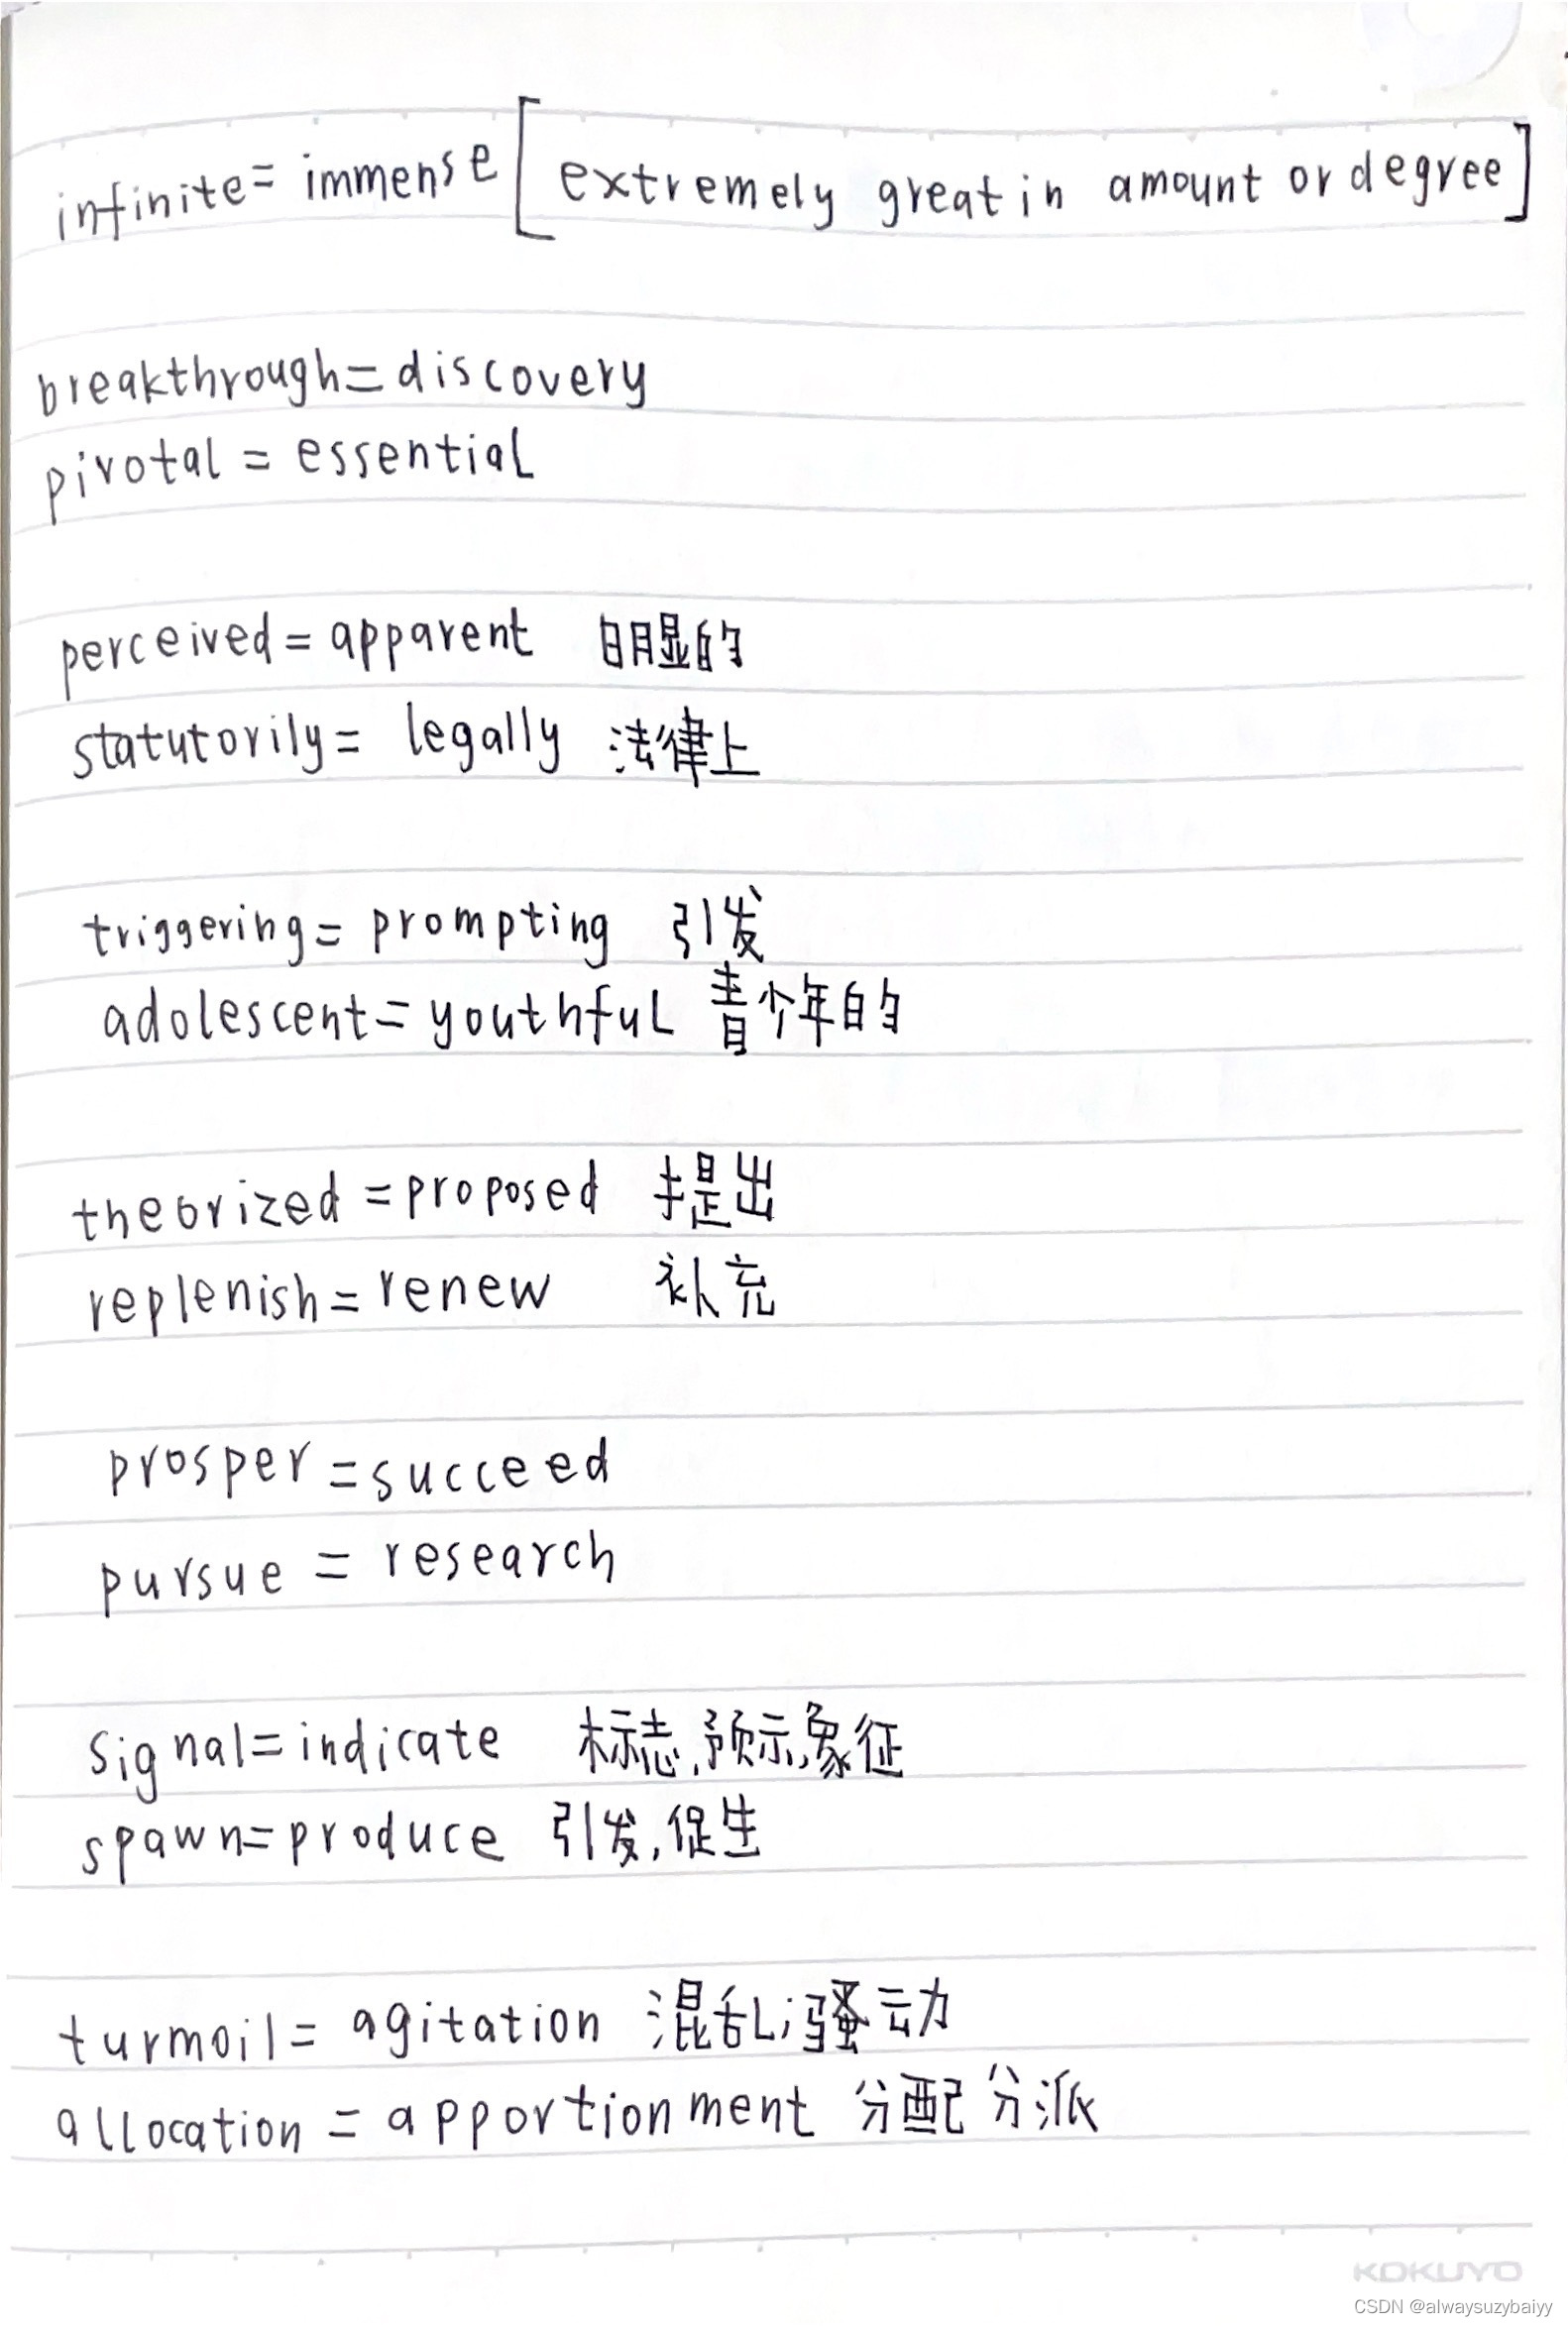 infinite= immense [extremely great in amount or degree]
breakthrough=discovery
pivotal = essential
perceived=apparent 明显的
statutorily= legally 法律上
triggering= prompting 引发
adolescent=youthful 青少年的
theorized=proposed 提出
replenish=renew 补充
prosper=succeed
pursue = research
signal=indicate 标志,预示,象征
spawn=produce 引发,促生
turmoil= agitation 混乱;骚动
allocation = apportionment 分配 分派
KOKUYO
CSDN @alwaysuzybaiyy